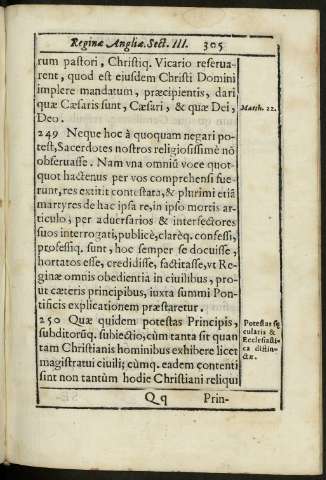 Reginæ Angliæ. Sect. III. 305
rum pastori, Christiq. Vicario reserua-
rent, quod est eiusdem Christi Domini
implere mandatum, præcipientis, dari
quæ Cæsaris sunt, Cæsari, & quæ Dei,
Deo.
Matth. 22.
249 Neque hoc à quoquam negari po-
test, Sacerdotes nostros religiosissimè nō
obseruasse. Nam vna omniū voce quot-
quot hactenus per vos comprehensi fue-
runt, res extitit contestata, & plurimi etiā
martyres de hac ipsa re, in ipso mortis ar-
ticulo, per aduersarios & interfectores
suos interrogati, publicè, clarèq. confessi,
professiq. sunt, hoc semper se docuisse,
hortatos esse, credidisse, factitasse, vt Re-
ginæ omnis obedientia in ciuilibus, pro-
ut cæteris principibus, iuxta summi Pon-
tificis explicationem præstaretur.
250 Quæ quidem potestas Principis,
subditorūq. subiectio, cùm tanta sit quan
tam Christianis hominibus exhibere licet
magistratui ciuili; cùmq. eadem contenti
sint non tantùm hodie Christiani reliqui
Potestas sę
cularis &
Ecclesiasti-
ca distin-
ctæ.
Qq Prin-